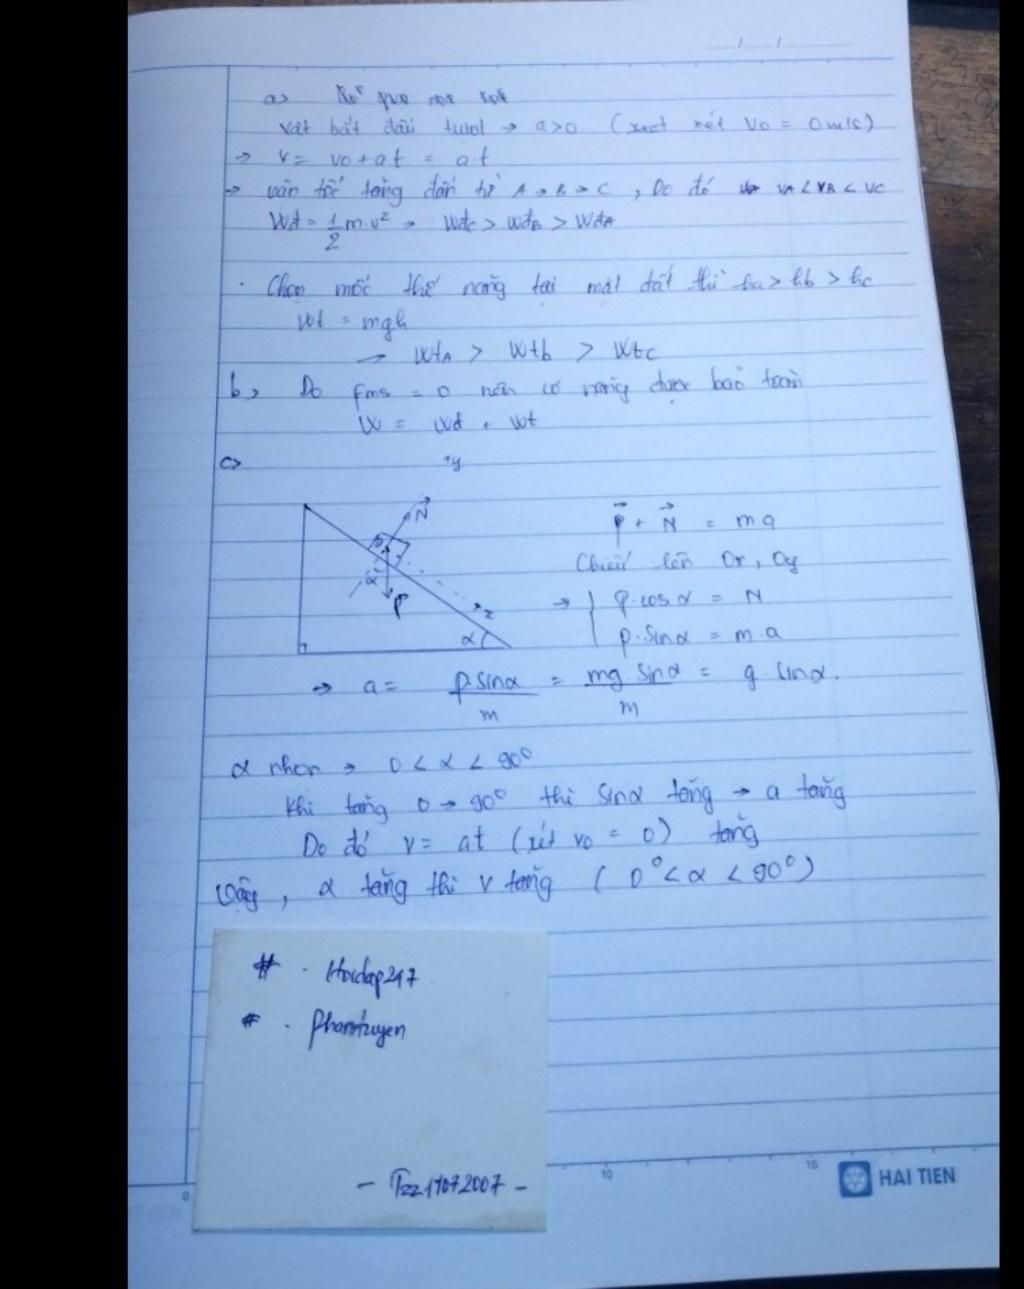 a>
Vật bắt đầu trượt → a>0. (xét V0 = 0m/s)
→ V = v0 + at = a.t
→ vận tốc tăng dần từ A → B → C, Do đó VA < VB < VC
Wđ = 1/2 m.v² → WđC > WđB > WđA
. Chọn mốc thế năng tại mặt đất thì ha > hb > hc
Wt = mgh
→ WtA > Wtb > Wtc
b, Do Fms = 0 nên cơ năng được bảo toàn
W = Wđ + Wt
c>
y
N
P + N = ma
Chiếu lên Ox, Oy
α
P
x
→ { P.cosα = N
α
P.Sinα = m.a
→ a = P.sinα/m = mg sinα/m = g sinα.
α nhọn → 0 < α < 90°
Khi tăng 0 → 90° thì Sinα tăng → a tăng
Do đó V = at (xét v0 = 0) tăng
Vậy, α tăng thì v tăng (0° < α < 90°)
# . Hoidap247
# .
10
15
0
HAI TIEN